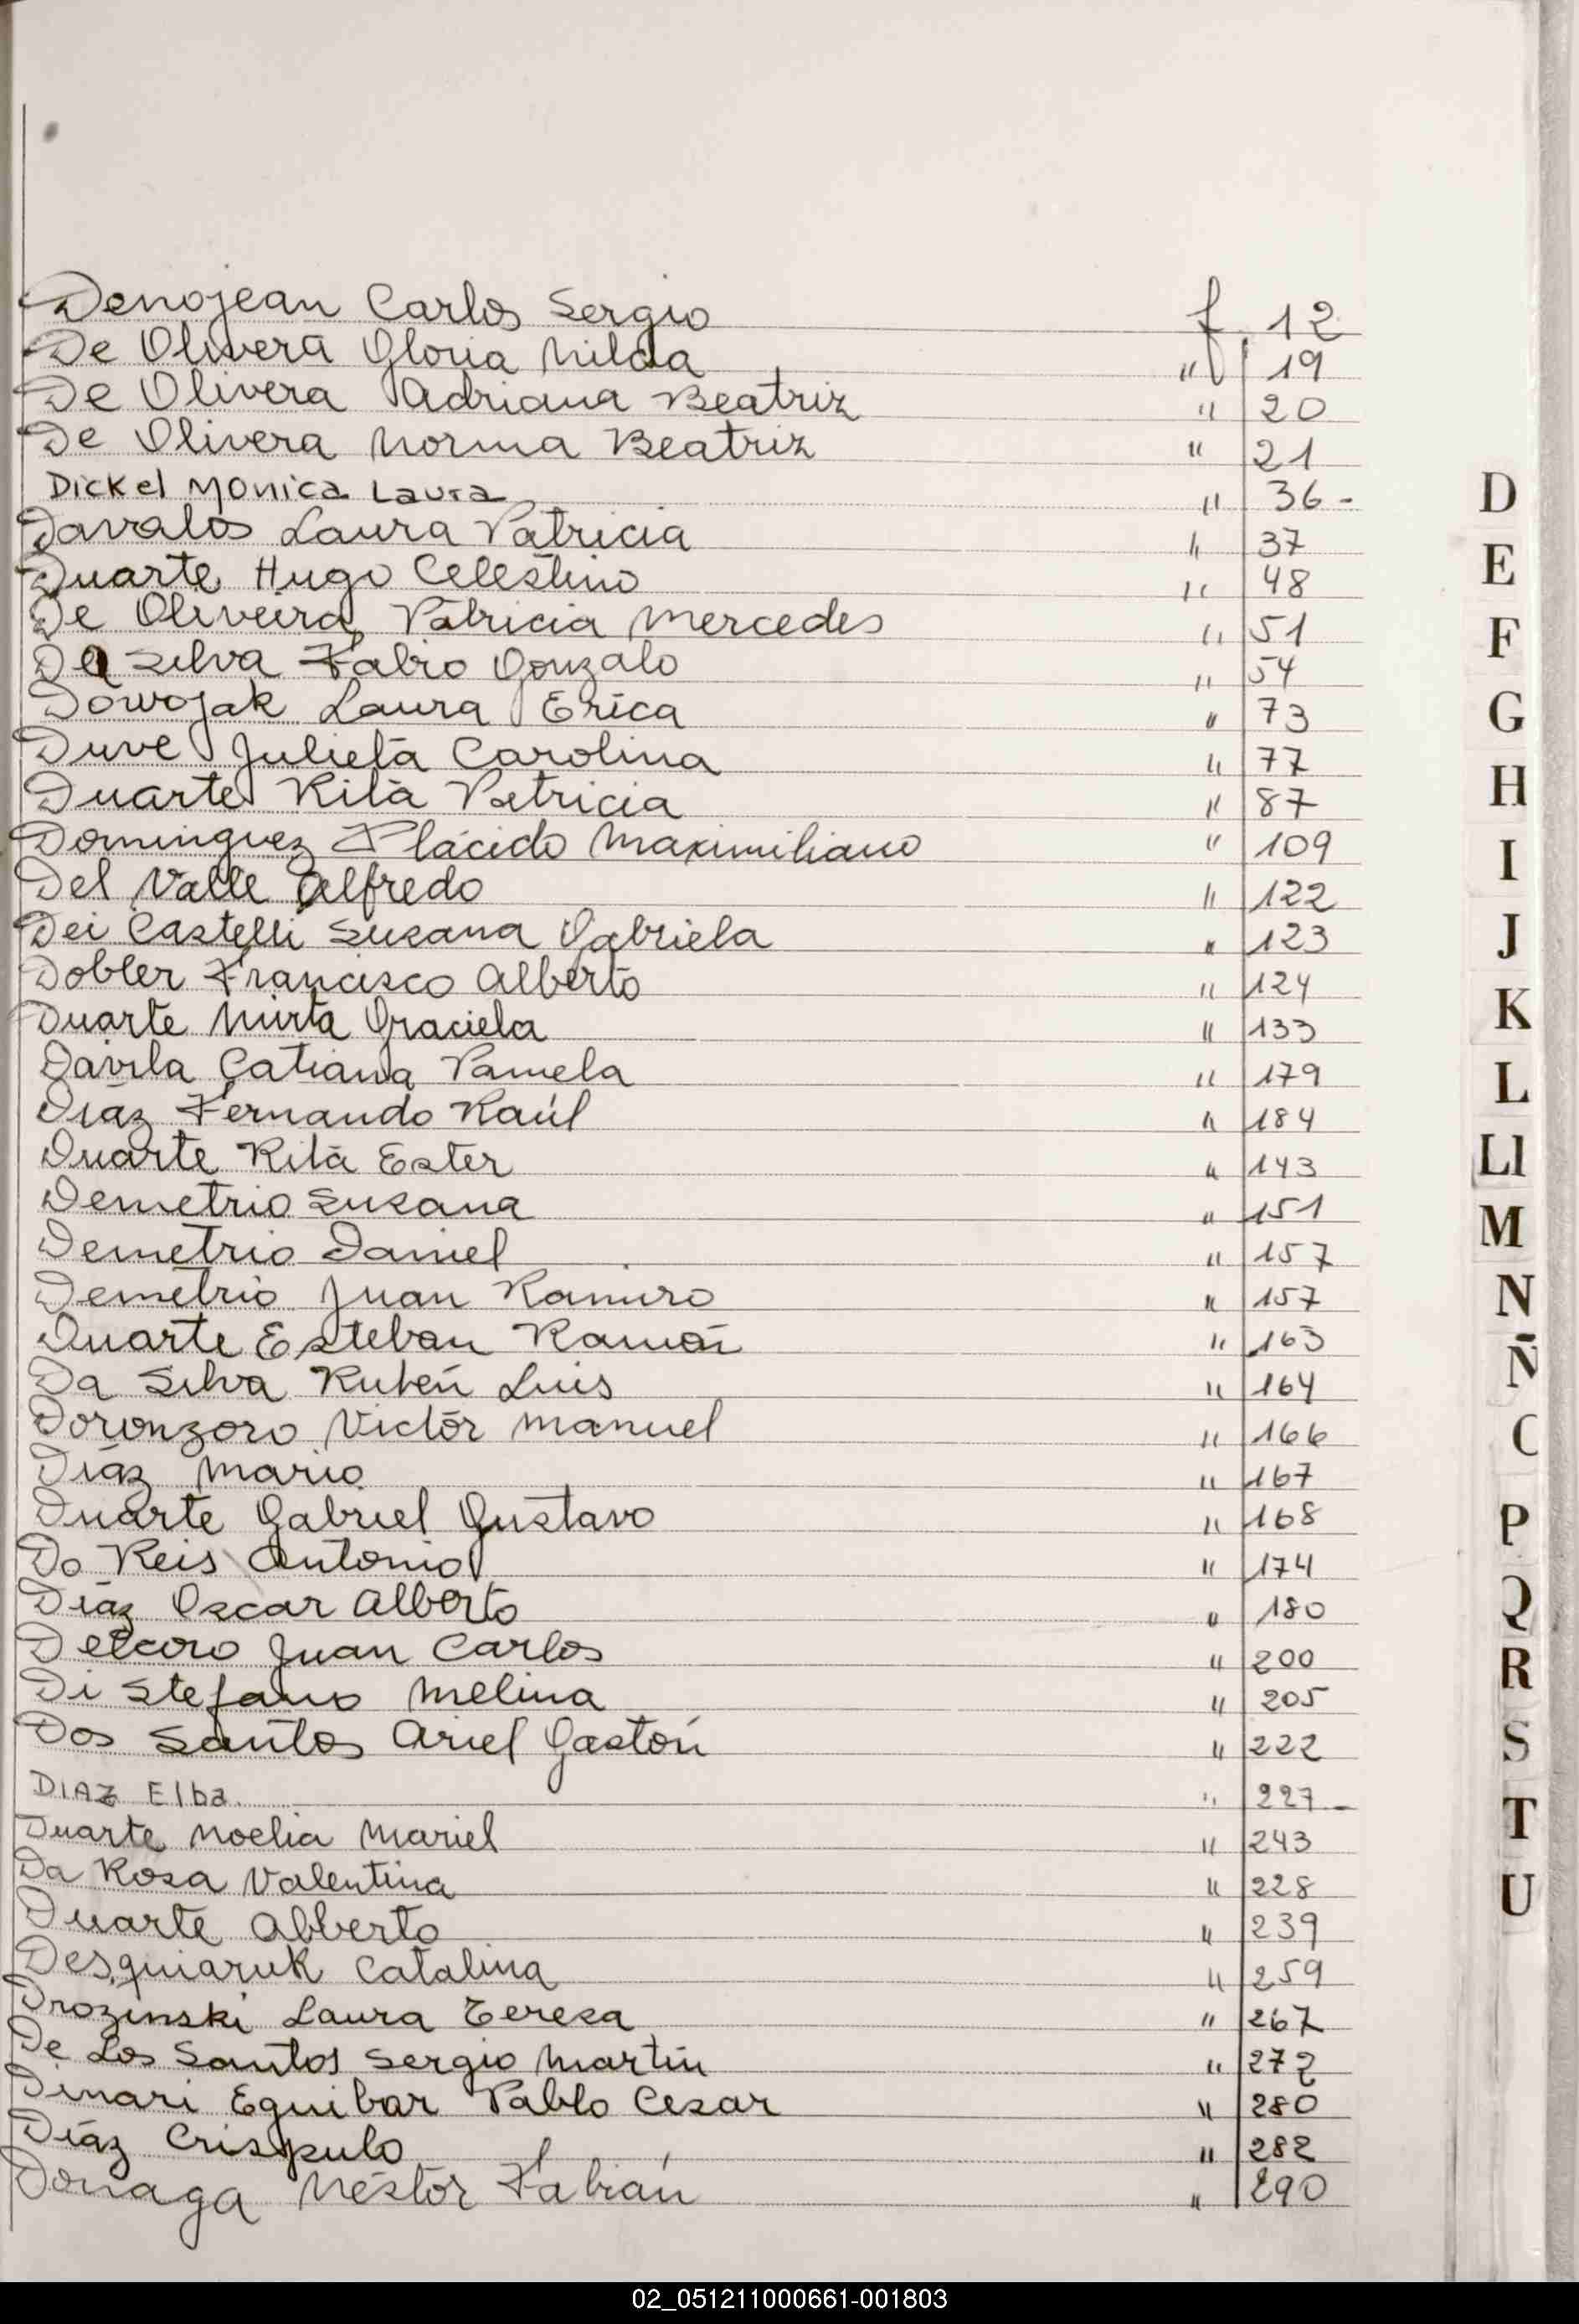 Denojean Carlos Sergio f. 12
De Olivera Gloria Nilda " 19
De Olivera Adriana Beatriz " 20
De Olivera Norma Beatriz " 21
Dickel Monica Laura " 36-
Davalos Laura Patricia " 37
Duarte Hugo Celestino " 48
De Oliveira Patricia Mercedes " 51
Da Silva Fabio Gonzalo " 54
Dowojak Laura Erica " 73
Duve Julieta Carolina " 77
Duarte Rita Patricia " 87
Dominguez Plácido Maximiliano " 109
Del Valle Alfredo " 122
Dei Castelli Susana Gabriela " 123
Dobler Francisco Alberto " 124
Duarte Mirta Graciela " 133
Davila Tatiana Pamela " 179
Díaz Fernando Raúl " 184
Duarte Rita Ester " 143
Demetrio Susana " 151
Demetrio Daniel " 157
Demetrio Juan Ramiro " 157
Duarte Esteban Ramón " 163
Da Silva Rubén Luis " 164
Doronzoro Victór Manuel " 166
Díaz Mario " 167
Duarte Gabriel Gustavo " 168
Do Reis Antonio " 174
Díaz Oscar Alberto " 180
Juan Carlos " 200
Di Stefano Melina " 205
Dos Santos Ariel Gastón " 222
DIAZ Elba. " 227-
Duarte Noelia Mariel " 243
Da Rosa Valentina " 228
Duarte Alberto " 239
Desquiaruk Catalina " 259
Drozinski Laura Teresa " 267
De Los Santos Sergio Martín " 272
Dinari Eguibar Pablo Cesar " 280
Díaz Crispulo " 282
Donaga Néstor Fabián " 290
D
E
F
G
H
I
J
K
L
Ll
M
N
Ñ
P
Q
R
S
T
U
02_051211000661-001803